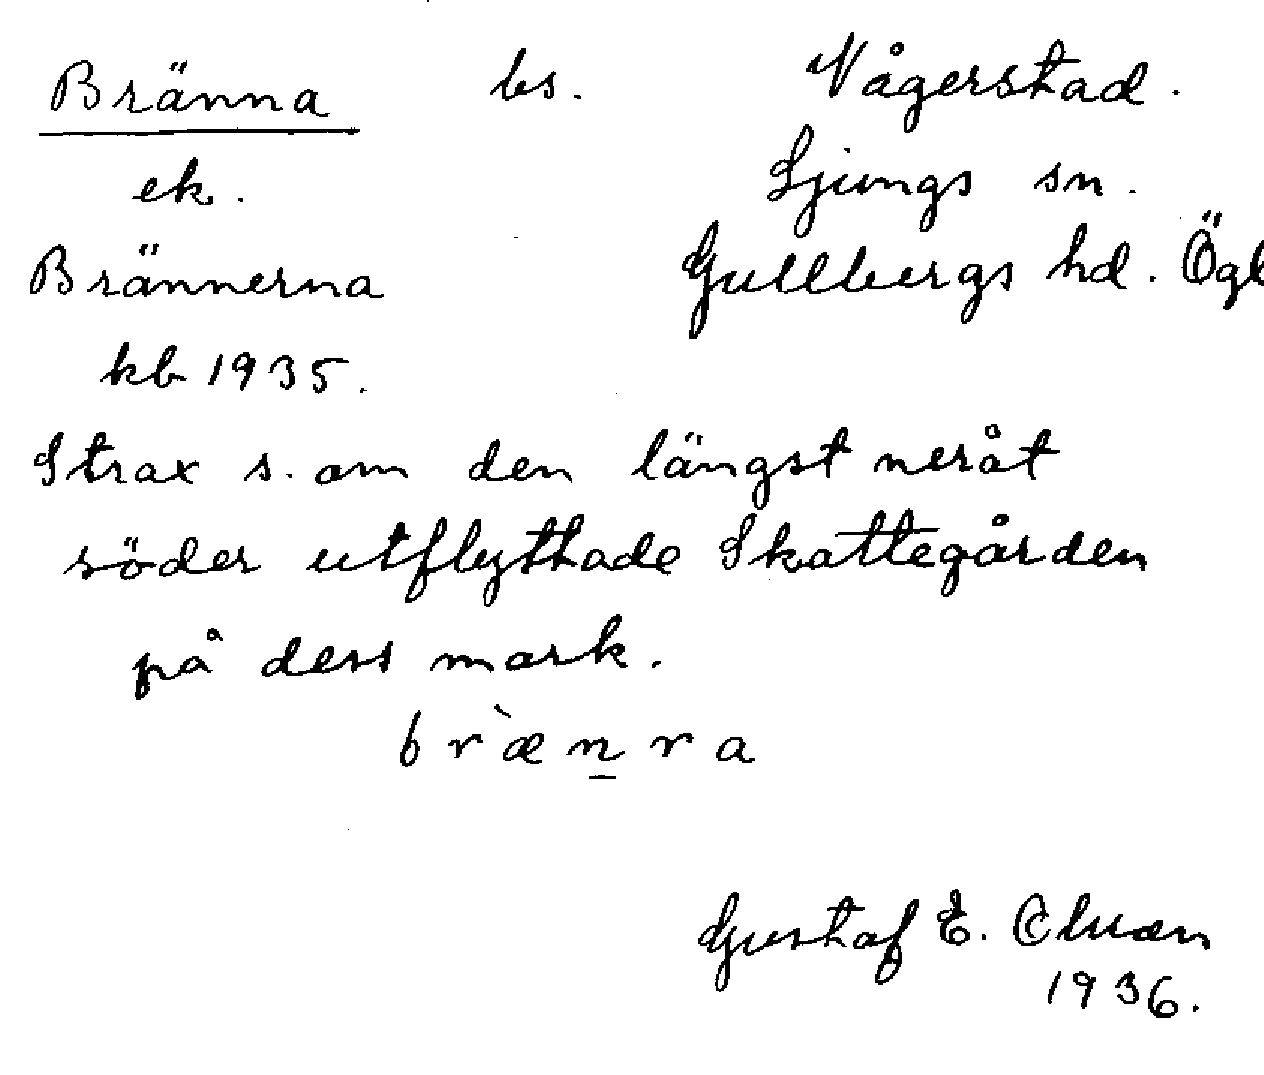 Bränna bs. Vågerstad.
ek. Ljungs sn.
Brännerna Gullbergs hd. Ögl
kb 1935.
Strax s. om den längst neråt
söder utflyttade Skattegården
på dess mark.
br&#x300;ænra
Gustaf E.
1936.